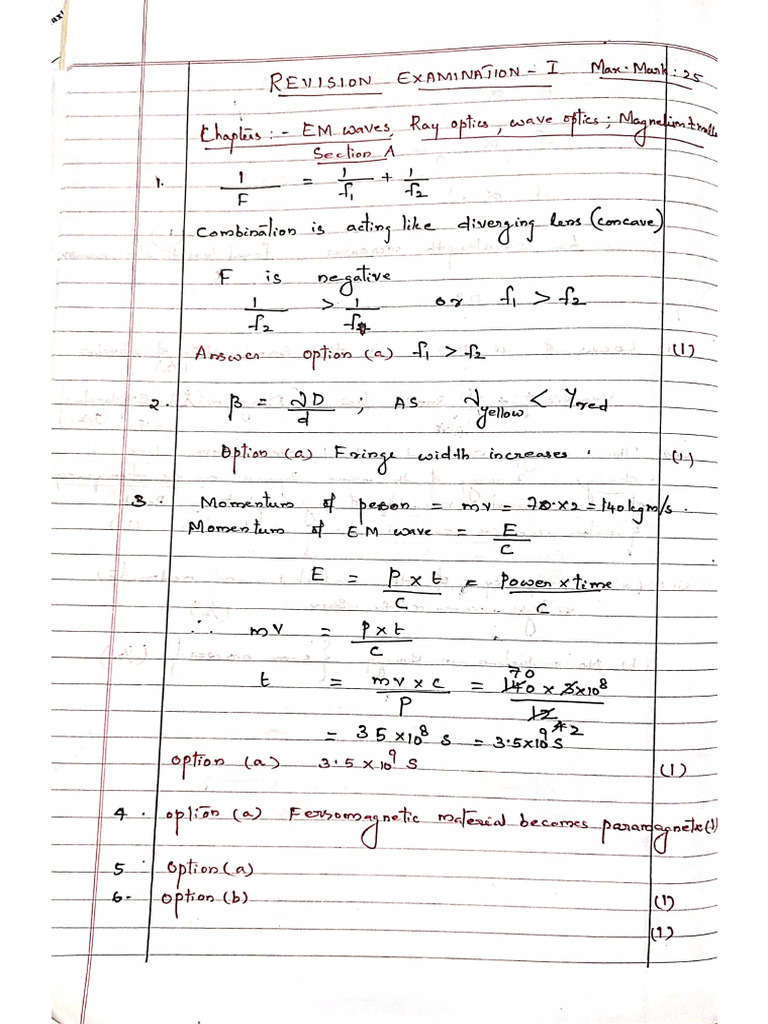 REVISION EXAMINATION - I Max. Mark: 25
Chapters :- EM waves, Ray optics, wave optics; Magnetism &
Section A
1. 1/F = 1/f₁ + 1/f₂
Combination is acting like diverging lens (concave)
F is negative
1/f₂ > 1/f₁ or f₁ > f₂
Answer option (a) f₁ > f₂ (1)
2. β = λD/d ; AS λyellow < γred
Option (a) Fringe width increases. (1)
3. Momentum of person = mv = 70×2 = 140 kgm/s.
Momentum of EM wave = E/C
E = P×t/C = Power×time/C
∴ mv = P×t/C
t = mv×c/P = 140 70 × 3×10⁸/12 4 2
= 35×10⁸ s = 3.5×10⁹ s
option (a) 3.5×10⁹ s (1)
4. option (a) Ferromagnetic material becomes paramagnetic (1)
5 option (a)
6. option (b) (1)
(1)